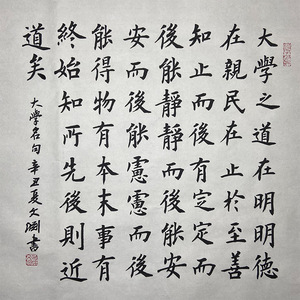 大學之道在明明德
在親民在止於至善
知止而後有定定而
後能靜靜而後能安
安而後能慮慮而後
能得物有本末事有
終始知所先後則近
道矣
大學名句辛丑夏文淵書